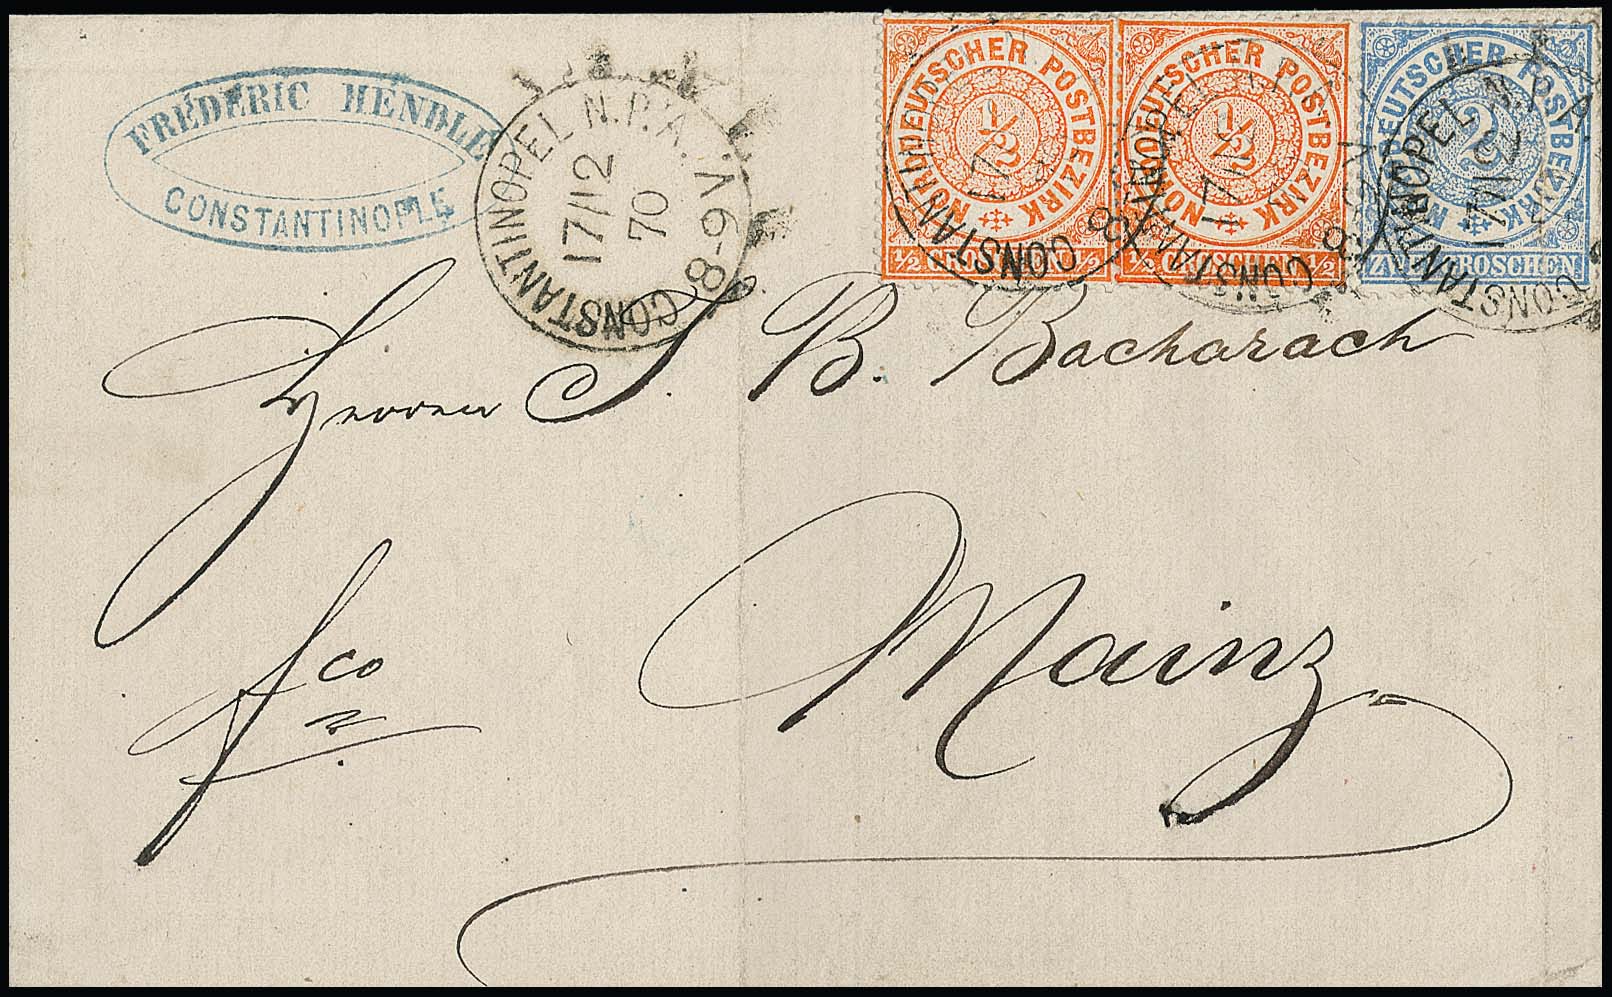 FRÉDERIC HENDLÉ
CONSTANTINOPLE
CONSTANTINOPEL N.P.A.
17/12
70
8-9V.
NORDDEUTSCHER POSTBEZIRK
1/2
1/2 GROSCHEN 1/2
CONSTAN
17
8
NORDDEUTSCHER POSTBEZIRK
1/2
1/2 GROSCHEN 1/2
CONSTANTINOPEL
17/1
8
NORDDEUTSCHER POSTBEZIRK
2
ZWEI GROSCHEN
CONSTANTINOPEL N.P.A.
17/12
Herren S. B. Bacharach
fco
Mainz